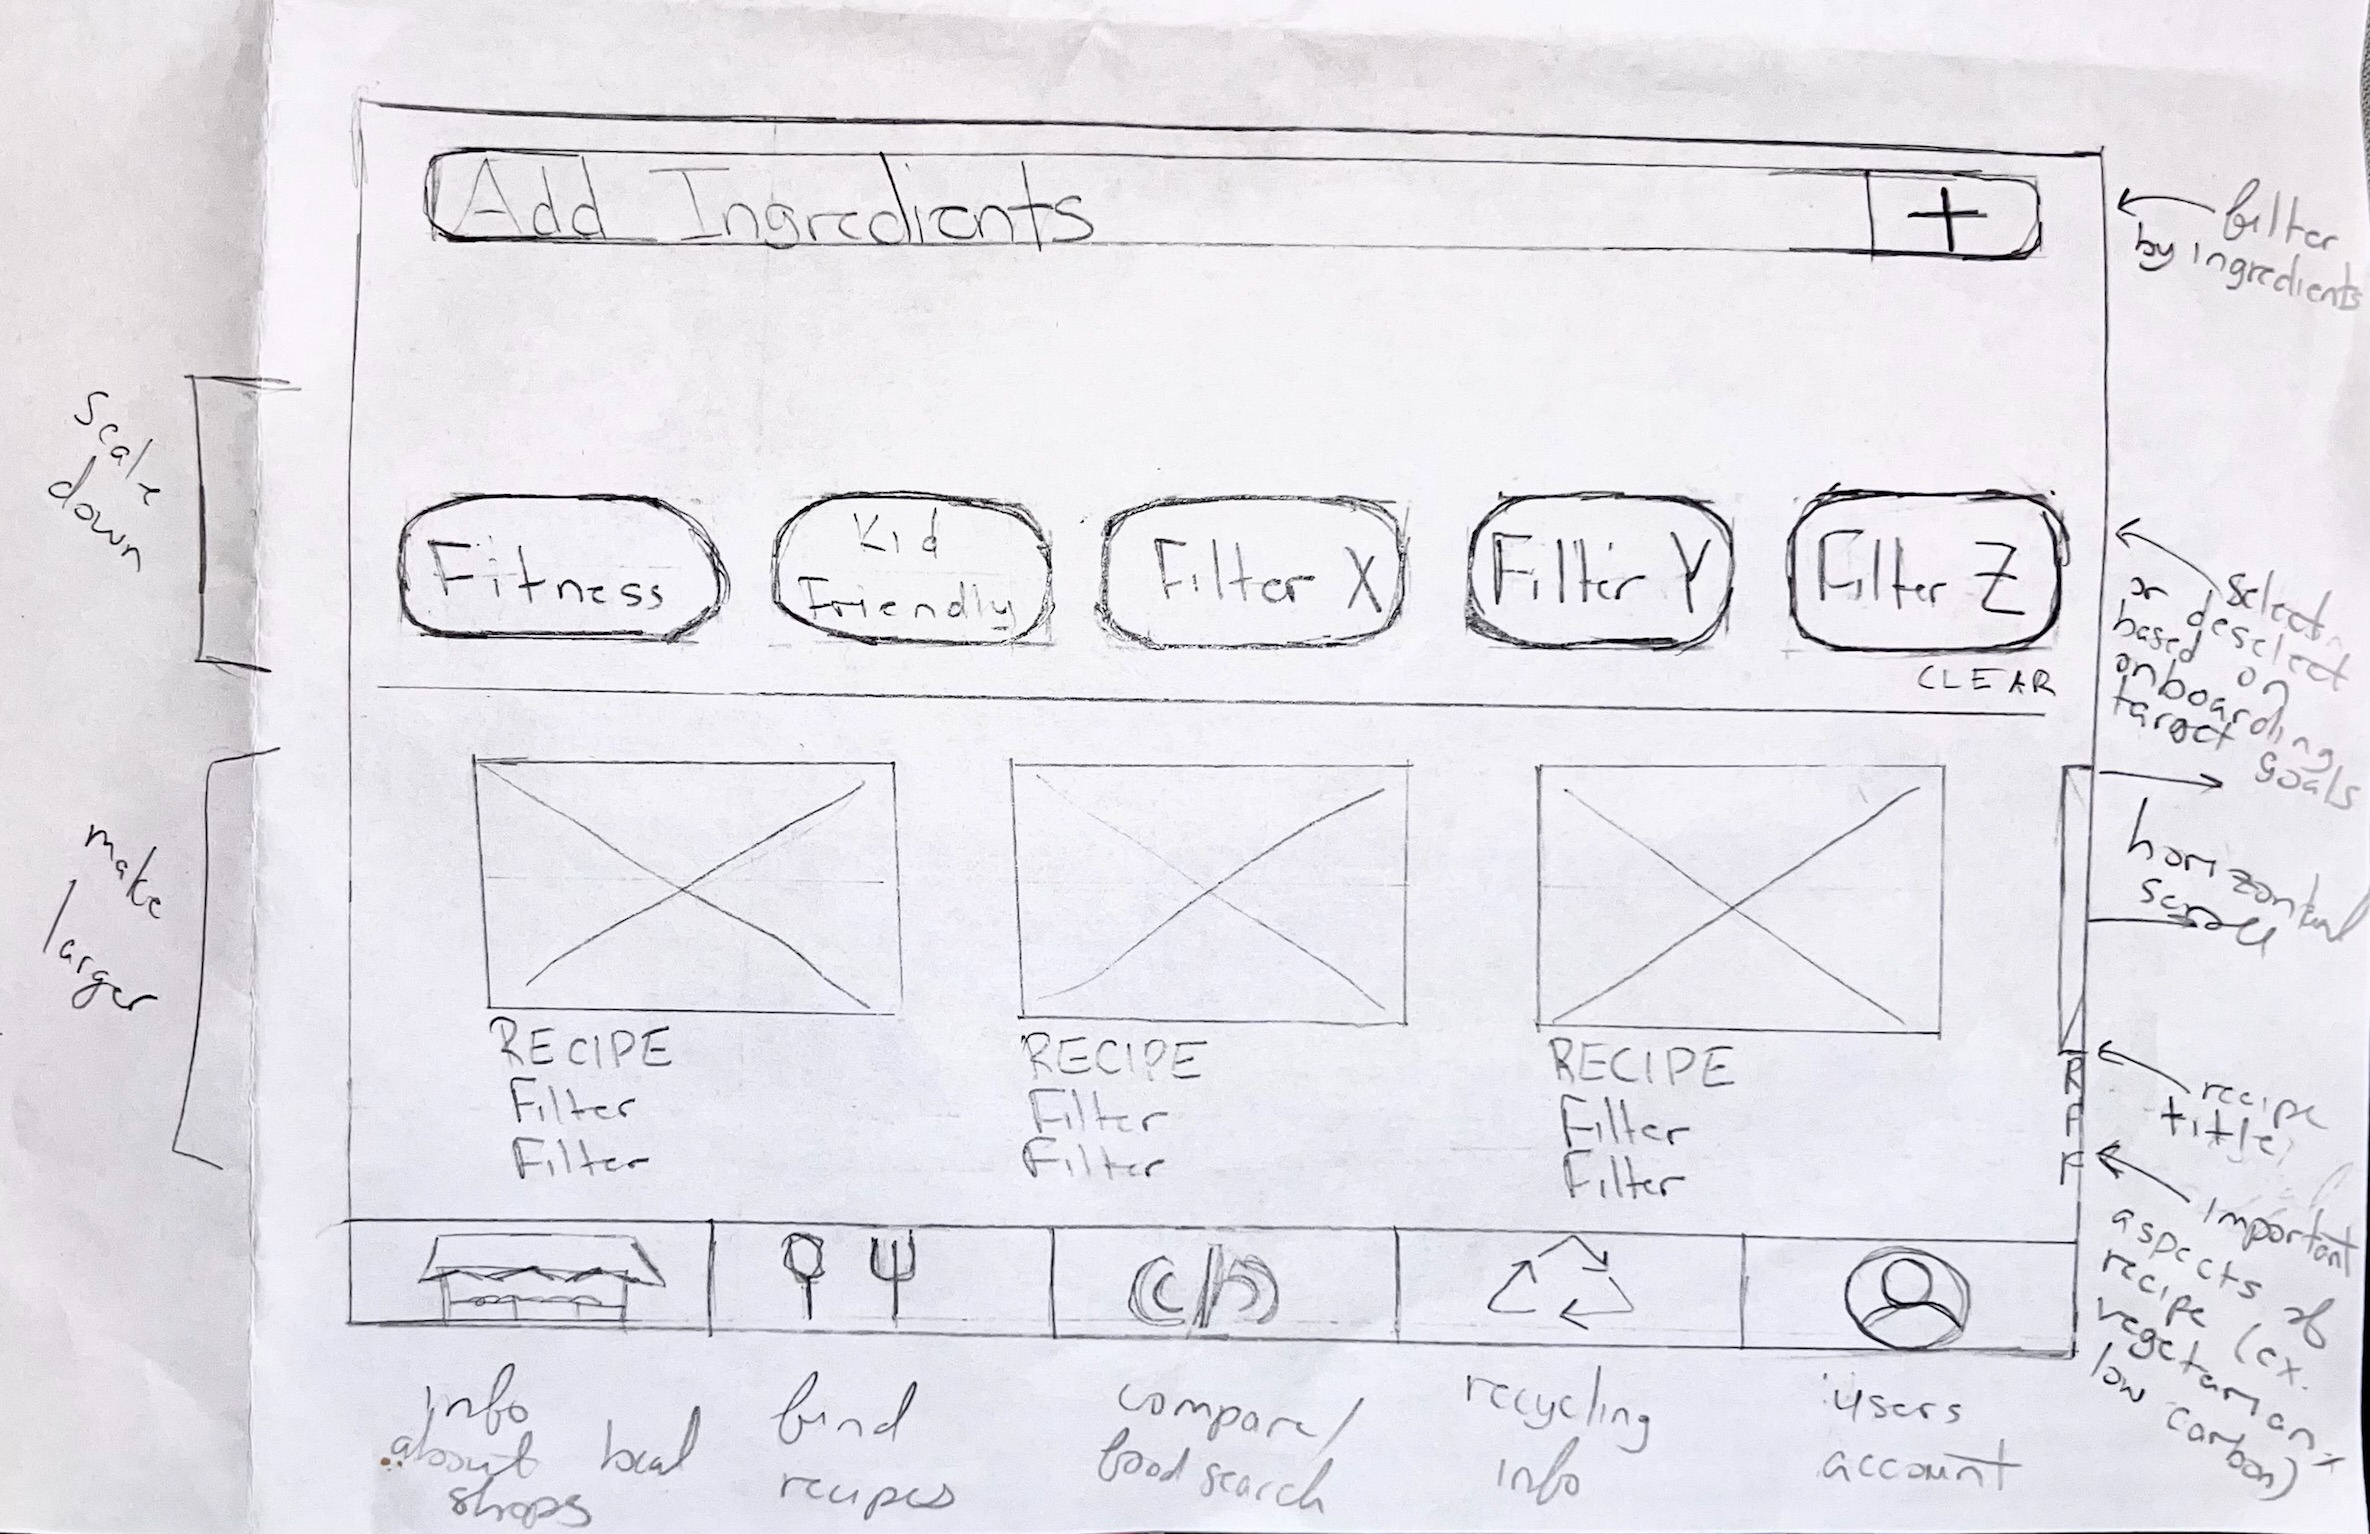 Add Ingredients +
filter
by ingredients
scale
down
Fitness
Kid
Friendly
Filter X
Filter Y
Filter Z
CLEAR
select
or deselect
based on
onboarding
target goals
horizontal
scroll
make
larger
RECIPE
Filter
Filter
RECIPE
Filter
Filter
RECIPE
Filter
Filter
R
F
F
recipe
title
important
aspects of
recipe (ex.
vegetarian +
low carbon)
info
about local
shops
find
recipes
compare/
food search
recycling
info
users
account